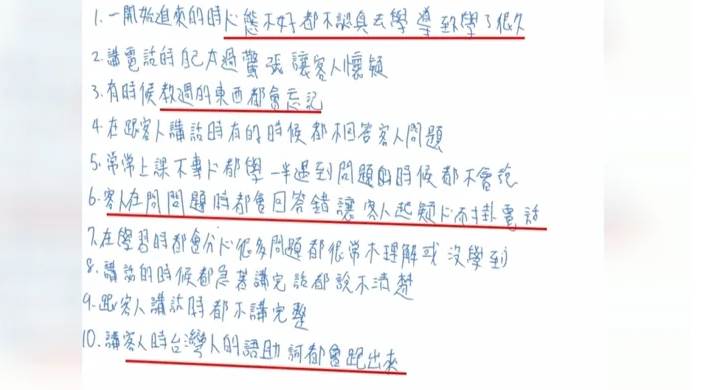 1.一開始進來的時心態不好都不認真去學 導致學了很久
2.講電話時自己太過驚張讓客人懷疑
3.有時候教過的東西都會忘記
4.在跟客人講話時有的時候都不回答客人問題
5.常常上課不專心都學一半遇到問題的時候都不會說
6.客人在問問題時都會回答錯讓客人起疑心而掛電話
7.在學習時都會分心很多問題都很常不理解或沒學到
8.講話的時候都急著講完話都說不清楚
9.跟客人講話時都不講完整
10.講客人時台灣人的語助詞都會跑出來